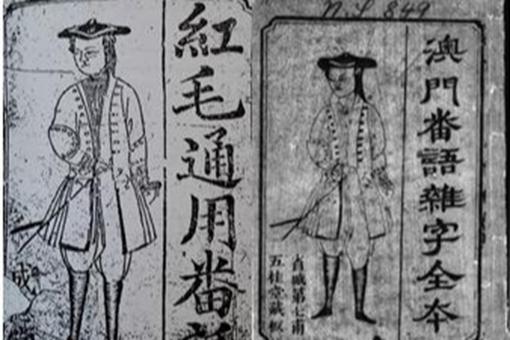 紅毛通用番
成
849
澳門番語雜字全本
省城第七甫
五桂堂藏板